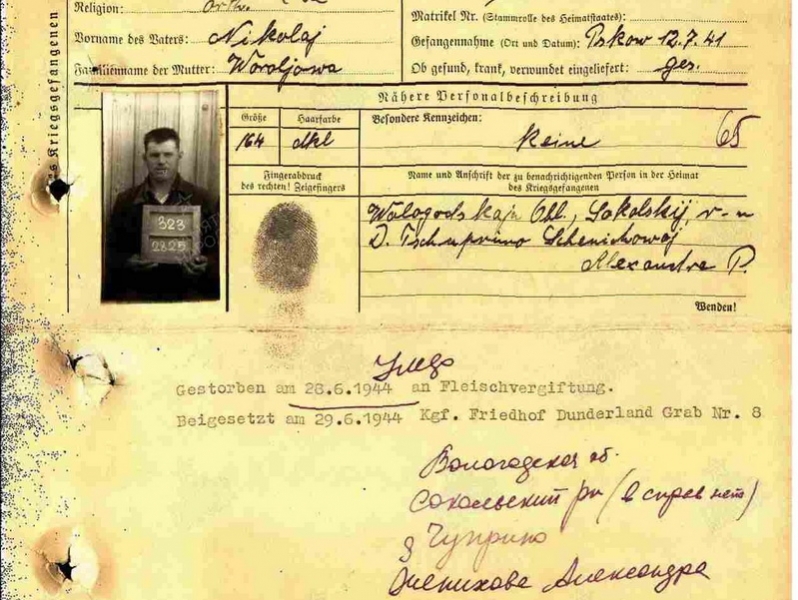 Religion: Orth.
Matrikel Nr. (Stammrolle des Heimatstaates):
Vorname des Vaters: Nikolaj
Gefangennahme (Ort und Datum): Pskow 12.7.41
Familienname der Mutter: Woroljowa
Ob gesund, krank, verwundet eingeliefert: ges.
des Kriegsgefangenen
Nähere Personalbeschreibung
Größe
Haarfarbe
Besondere Kennzeichen:
164
dkl
keine
65
Fingerabdruck
des rechten! Zeigefingers
Name und Anschrift der zu benachrichtigenden Person in der Heimat
des Kriegsgefangenen
323
2825
Wologodskaja Obl., Sokolskij r-n
D. Tschuprino Schenichowa
Alexandra P.
Wenden!
Gestorben am 28.6.1944 an Fleischvergiftung.
Beigesetzt am 29.6.1944 Kgf. Friedhof Dunderland Grab Nr. 8
Вологодская об.
Сокольский рн (в справ нет)
д Чуприно
Женихова Александра